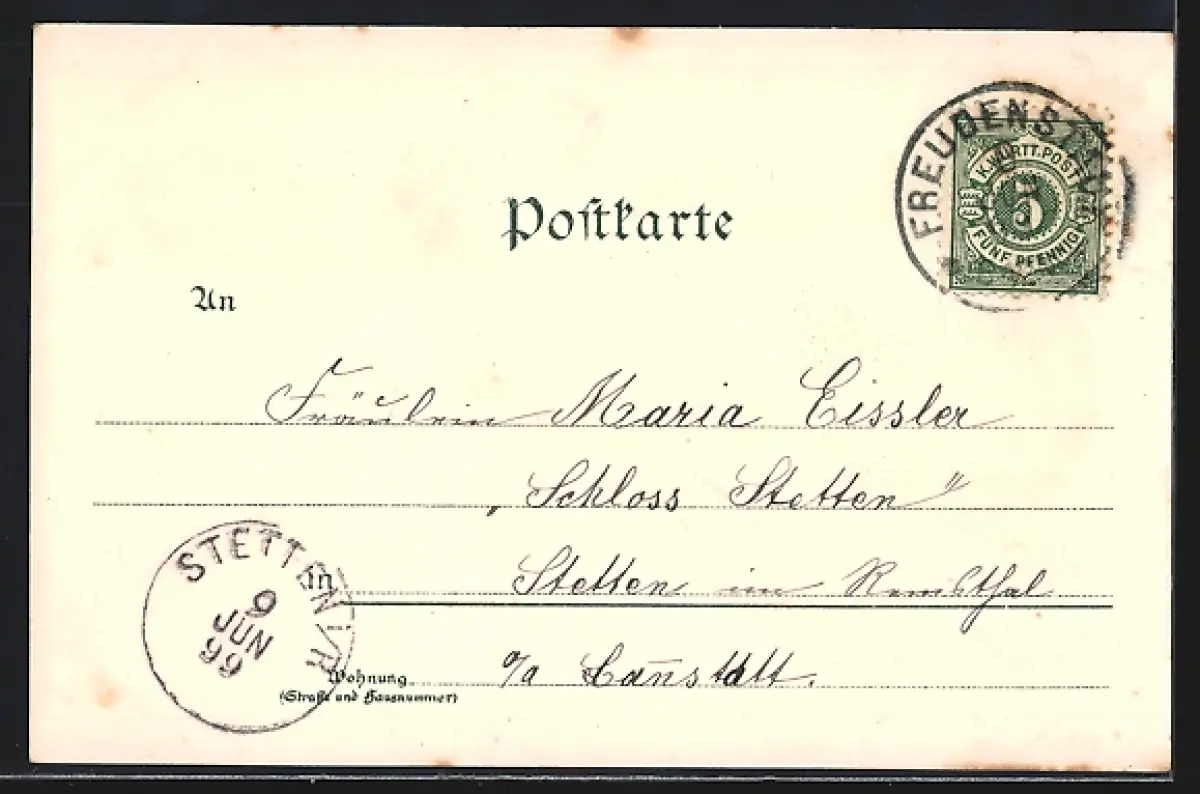 FREUDENSTADT
K.WÜRTT.POST
5
FÜNF PFENNIG
Postkarte
An
Fräulein Maria Eissler
„Schloss Stetten"
in Stetten im Remsthal
STETTEN I/R
9
JUN
99
Wohnung
(Straße und Hausnummer)
o/a Canstatt.